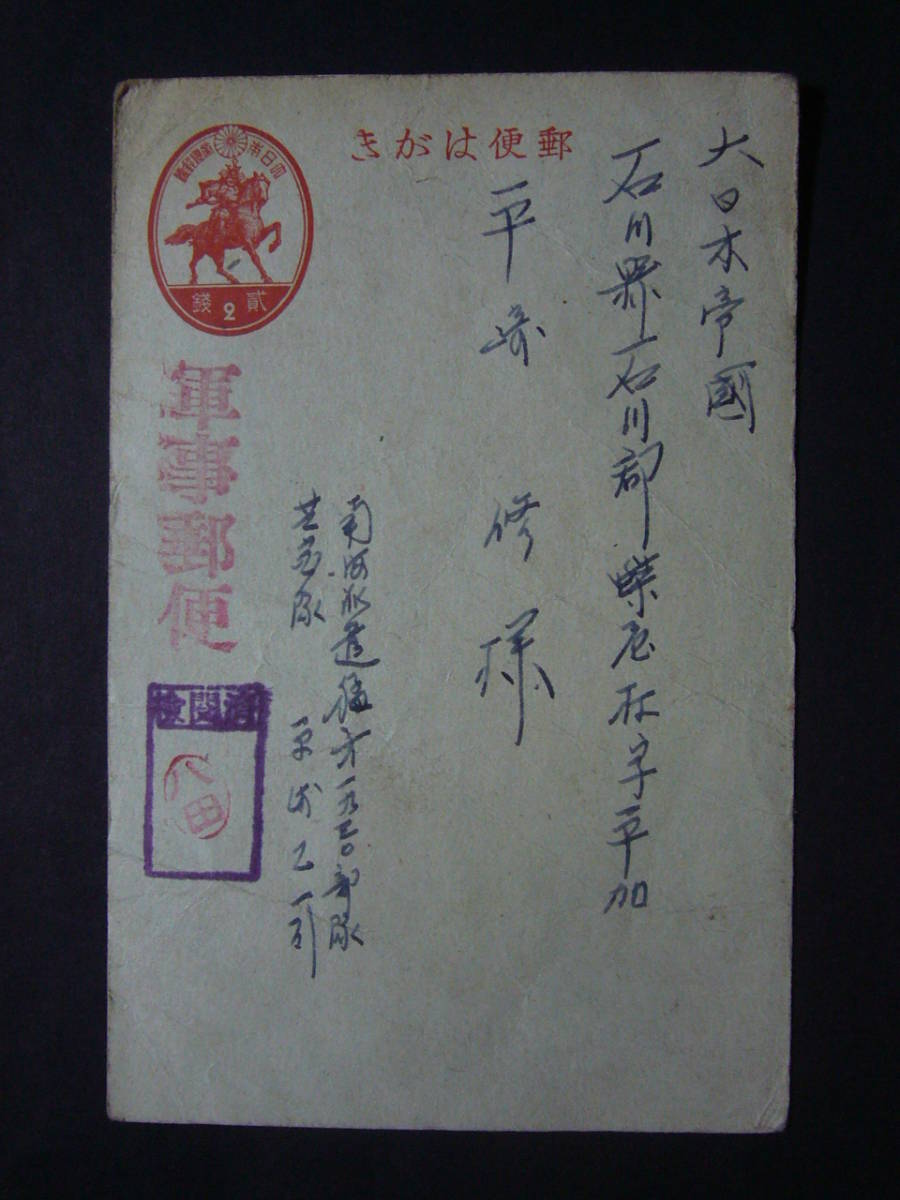 郵便はがき
大日本帝國
石川縣石川郡柴屋村字平加
平崎 修様
南海派遣猛第一九三〇部隊
隊
平崎乙
大日本帝國郵便
貳錢
2
軍事郵便
検閲済
八田